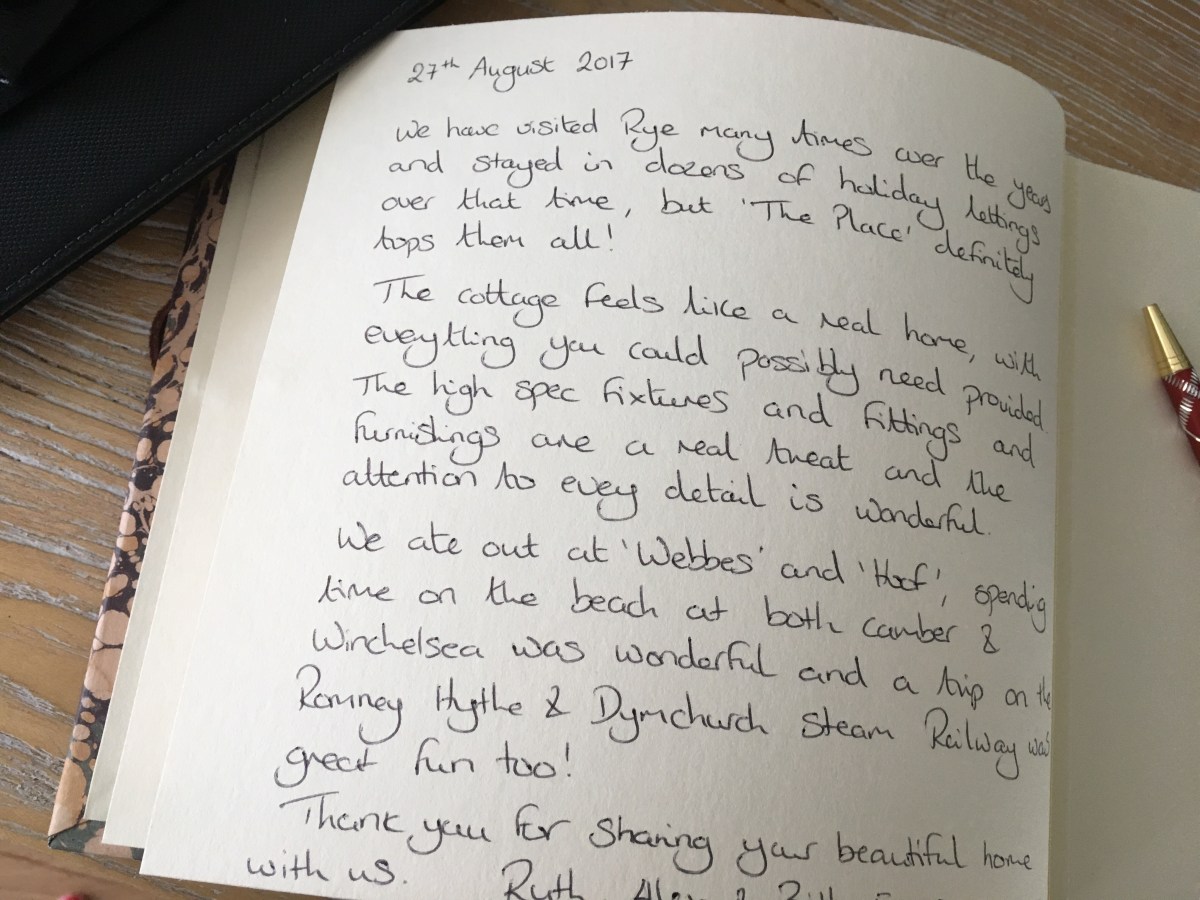 27th August 2017
We have visited Rye many times over the years
and stayed in dozens of holiday lettings
over that time, but 'The Place' definitely
tops them all!
The cottage feels like a real home, with
eveything you could possibly need provided.
The high spec fixtures and fittings and
furnishings are a real treat and the
attention to evey detail is wonderful.
We ate out at 'Webbes' and 'Hoof', spending
time on the beach at both Camber &
Winchelsea was wonderful and a trip on the
Romney Hythe & Dymchurch Steam Railway was
great fun too!
Thank you for sharing your beautiful home
with us. Ruth